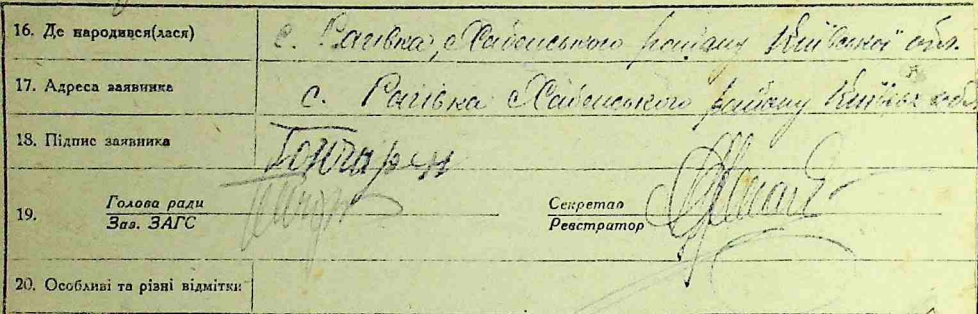 16. Де народився(лася) с. Рагівка, Хабенського району Київської обл.
17. Адреса заявника с. Рагівка Хабенського району Київськ обл
18. Підпис заявника Гончарен
19. Голова ради Секретар
Зав. ЗАГС Реєстратор
20. Особливі та різні відмітки